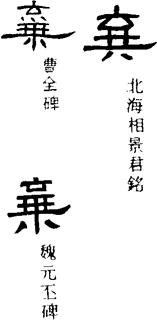 棄
北海相景君銘
棄
曹全碑
棄
魏元丕碑